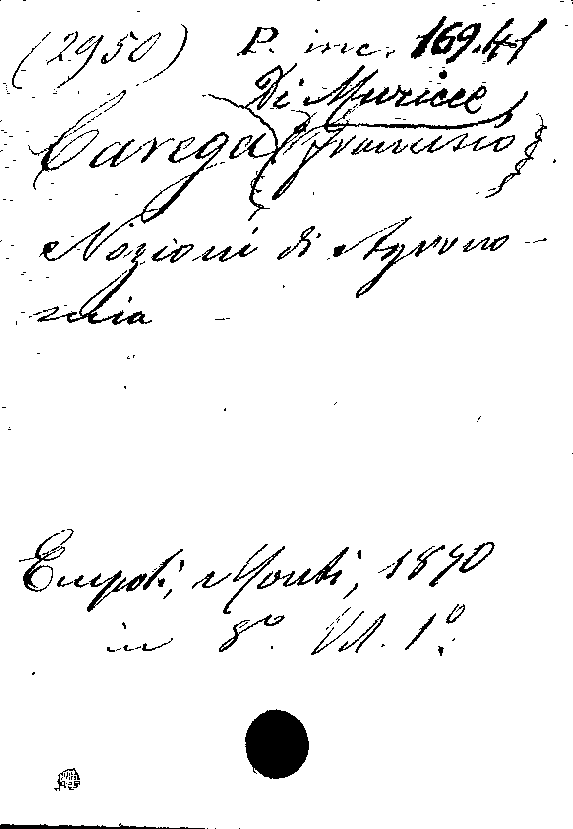 (2950) P. inc. 169.41
Di Muricce
Carega (Francesco)
Nozioni di Agrono-
mia
Empoli, Monti, 1870
in 8º. Vol. 1º.